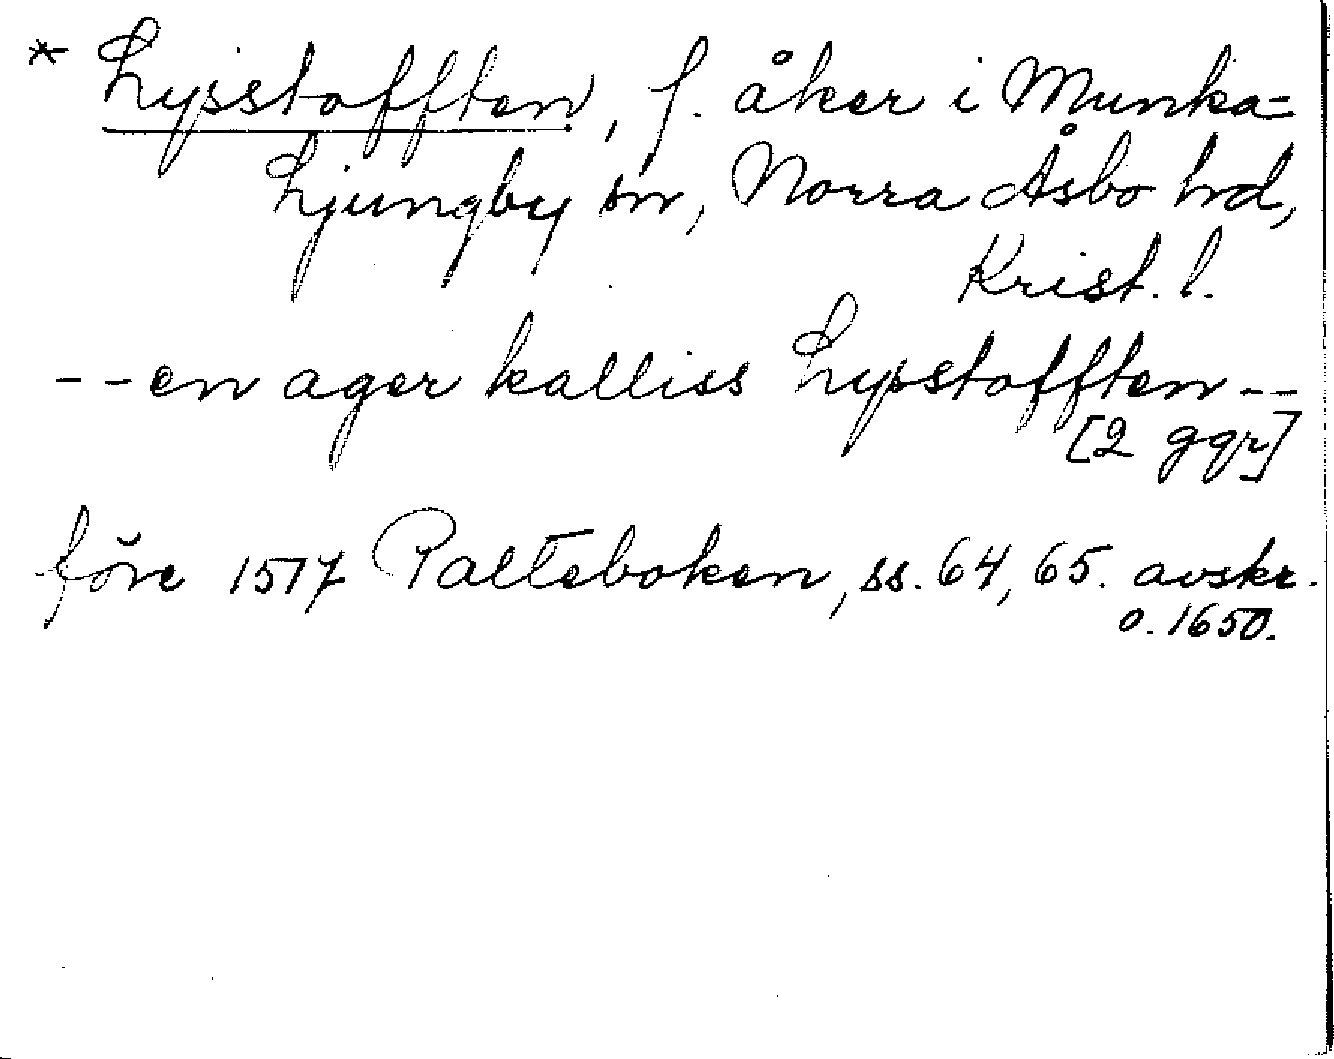 * Lysstofften, f. åker i Munka=
Ljungby sn, Norra Åsbo hd,
Krist. l.
--en ager kalliss Lysstofften--
[2 ggr]
före 1517 Palteboken, ss. 64, 65. avskr.
o. 1650.